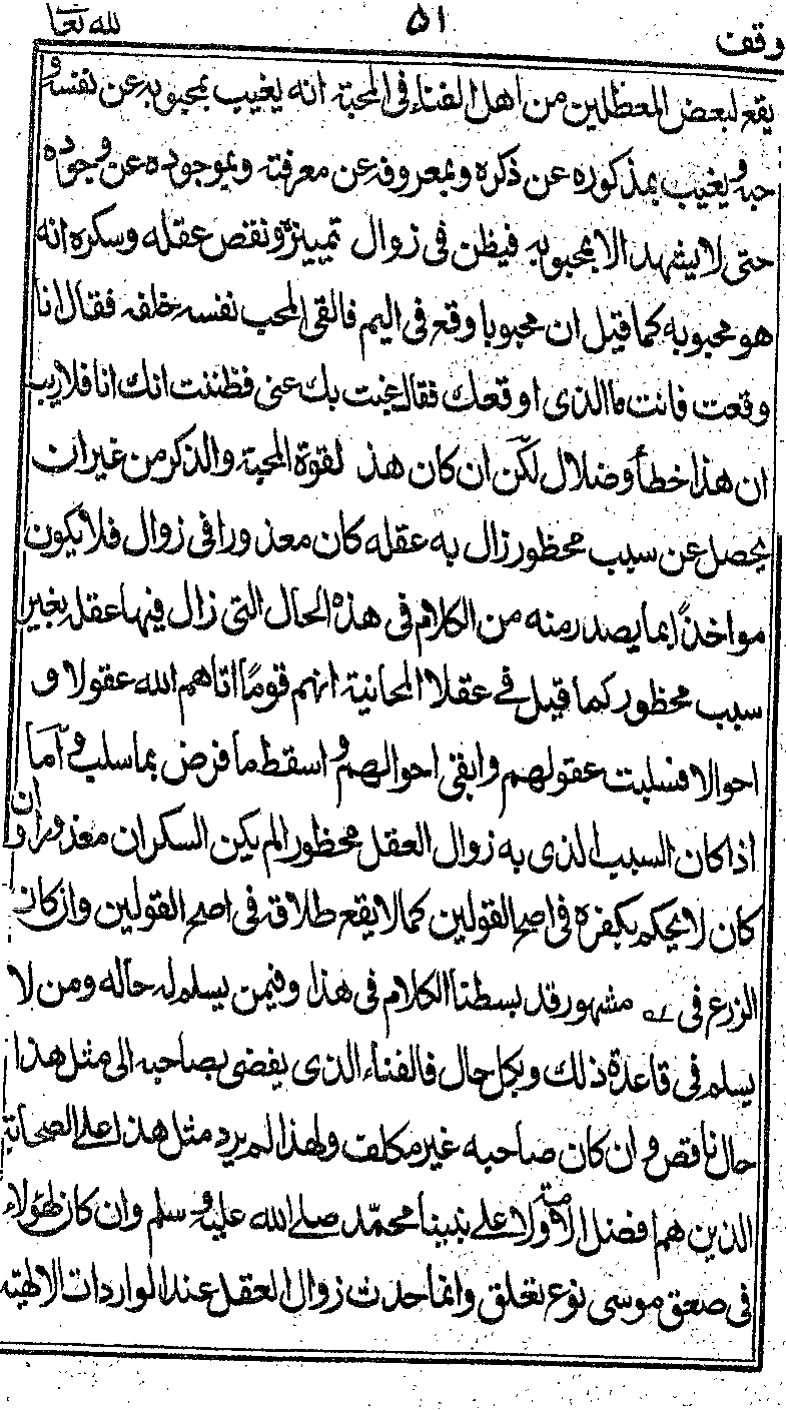 وقف ٥١ لله تعا
يقع لبعض المعظلين من اهل الفناء فى المحبة انه يغيب بمحبوبه عن نفسه و
حبه و يغيب بمذكوره عن ذكره وبمعروفه عن معرفته وبموجوده عن وجوده
حتى لا يشهد الا بمحبوبه فيظن فى زوال تمييزه ونقص عقله وسكره انه
هو محبوبه كما قيل ان محبوبا وقع فى اليم فالقى المحب نفسه خلفه فقال انا
وقعت فانت ما الذى اوقعك فقال غبت بك عنى فظننت انك انا فلاريب
ان هذا خطأ وضلال لكن ان كان هذ لقوة المحبة والذكر من غير ان
يحصل عن سبب محظور زال به عقله كان معذورا فى زوال فلا يكون
مواخذًا بما يصدر منه من الكلام فى هذه الحال التى زال فيها عقله بغير
سبب محظور كما قيل فى عقلا المحانية انهم قومًا اتاهم الله عقولا و
احوالا فسلبت عقولهم وابقى احوالهم و اسقط ما فرض بما سلب و اما
اذا كان السبب الذى به زوال العقل محظورا لم يكن السكران معذورا وان
كان لا يحكم بكفره فى اصح القولين كما لا يقع طلاقه فى اصح القولين وان كان
الزرع فى مشهور قد بسطنا الكلام فى هذا وفيمن يسلم له حاله ومن لا
يسلم فى قاعدة ذلك وبكل حال فالفناء الذى يفضى بصاحبه الى مثل هذا
حال ناقص و ان كان صاحبه غير مكلف ولهذا لم يرد مثل هذا على الصحابة
الذين هم افضل الامة ولا على نبينا محمّد صلى الله عليه و سلم وان كان لهؤلاء
فى صعق موسى نوع تعلق وانما حدث زوال العقل عند الواردات الالهيّه